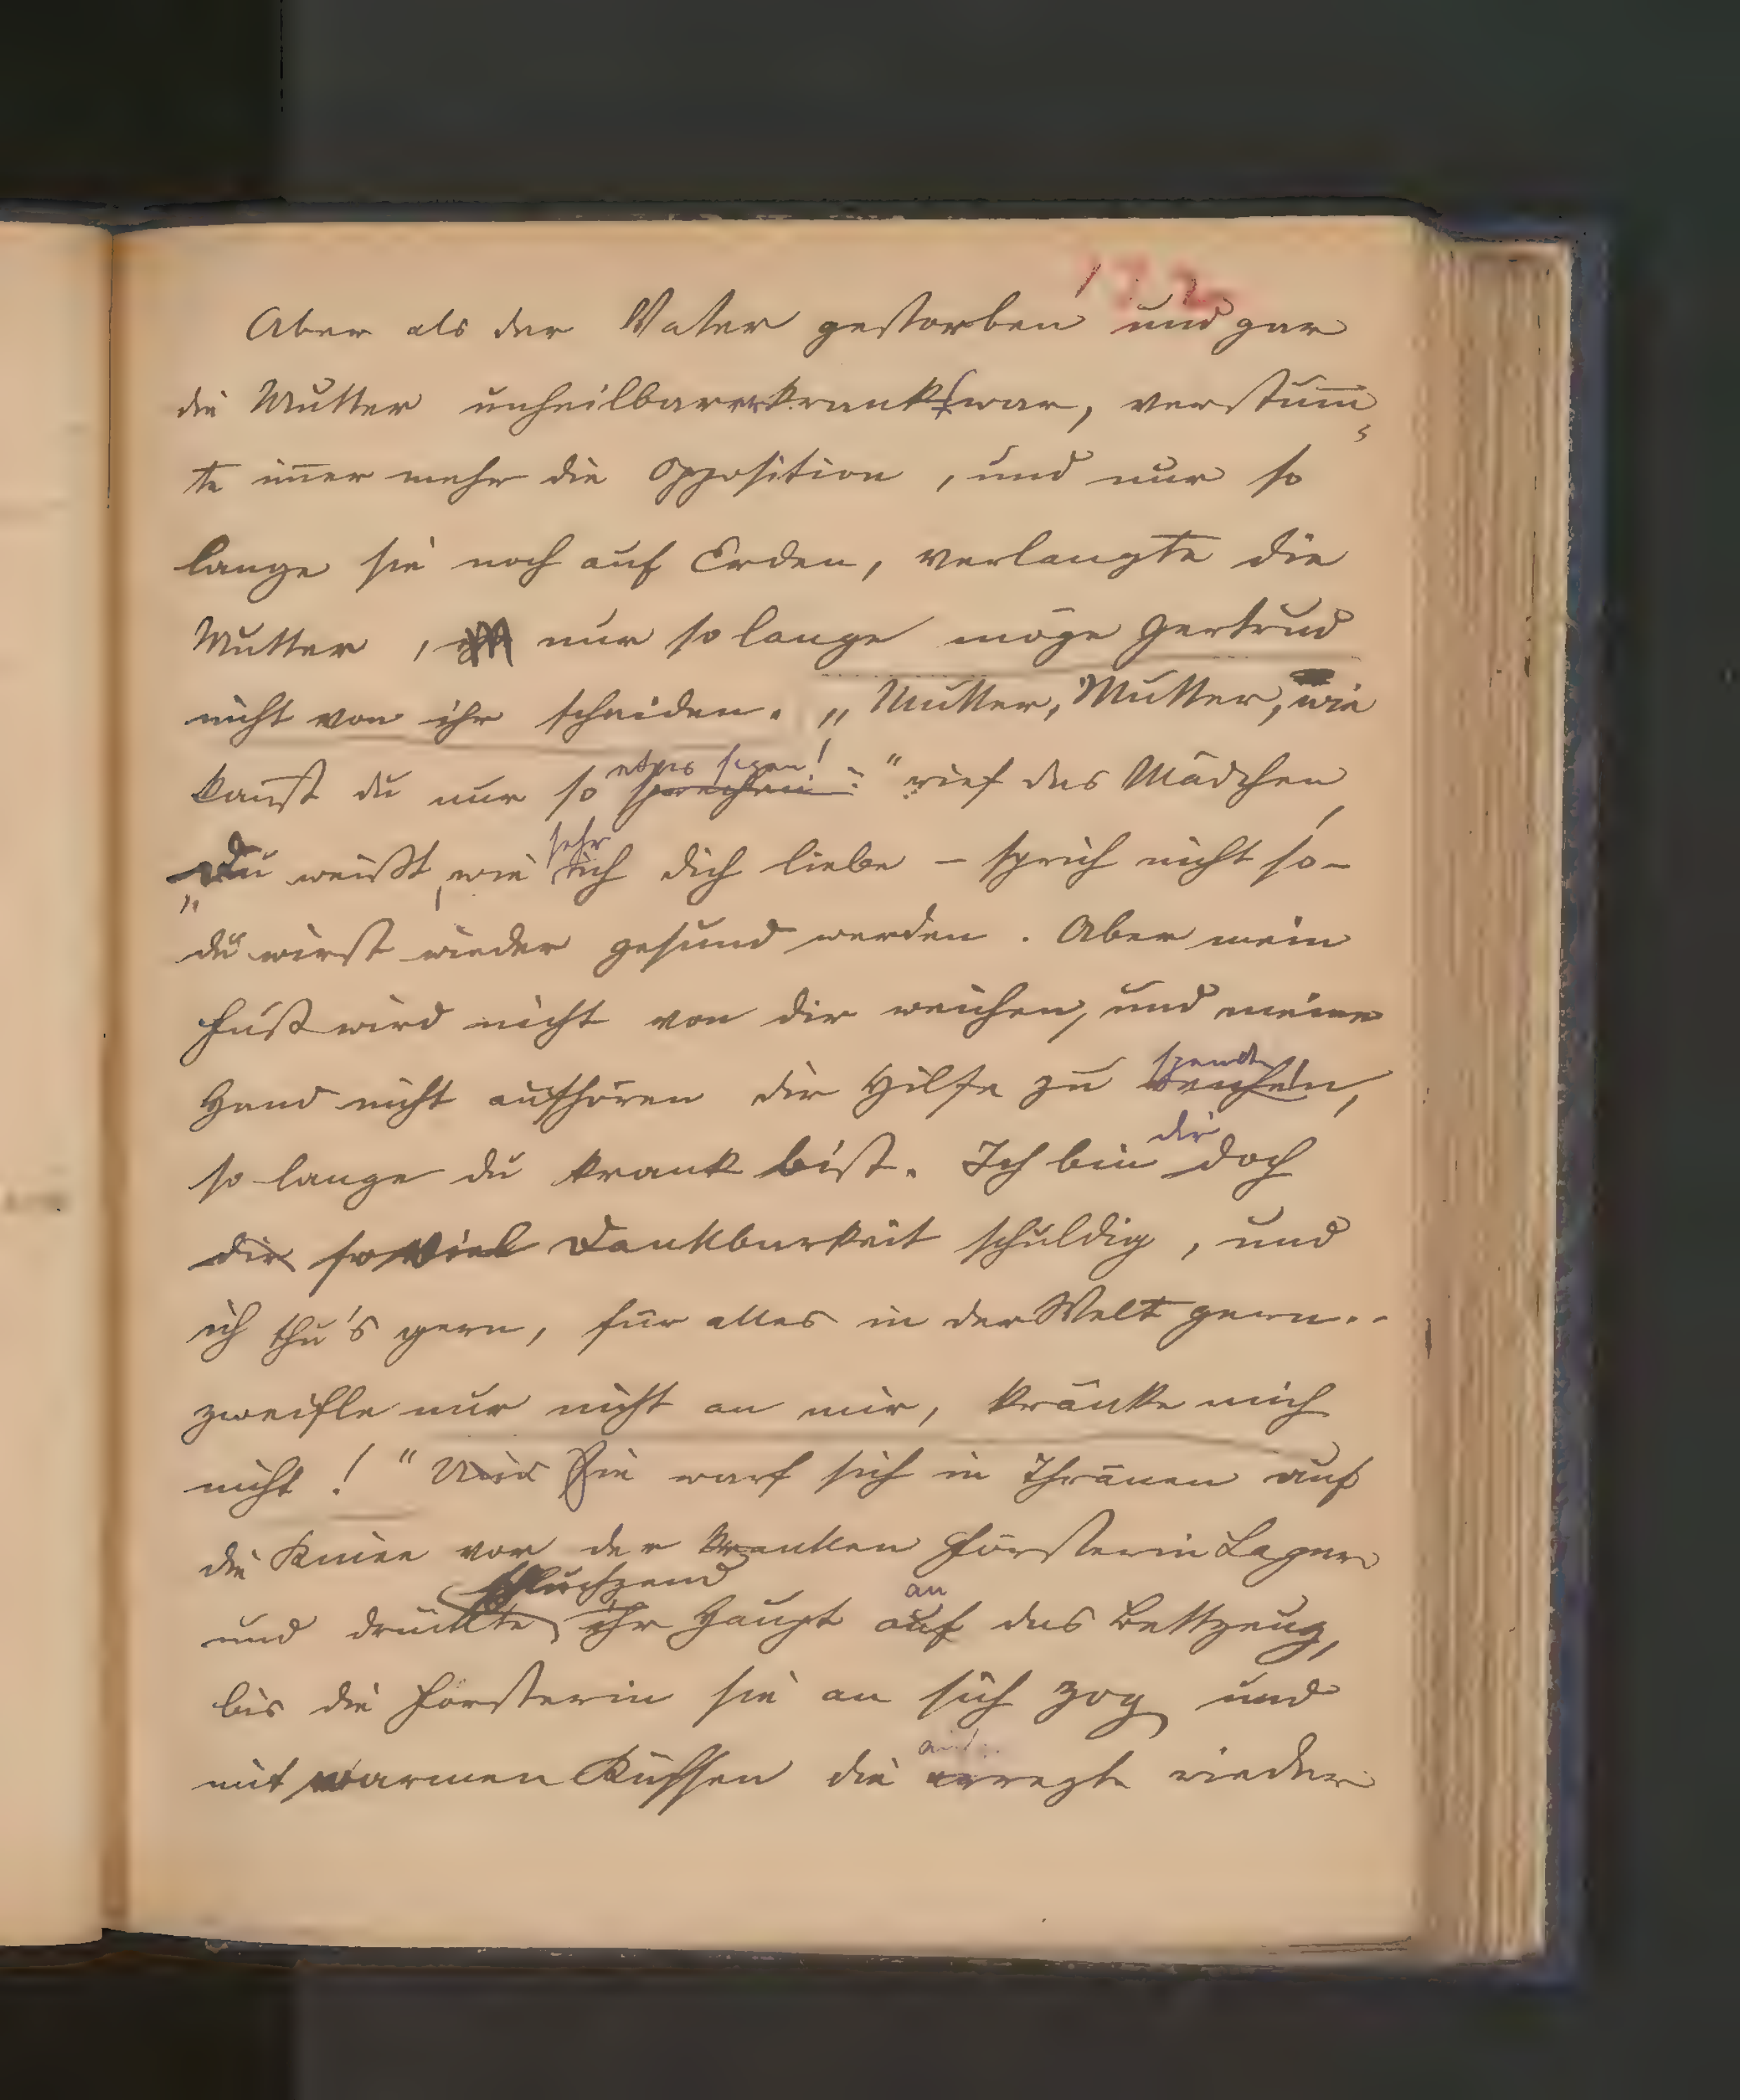 172
Aber als der Vater gestorben und gar
die Mutter unheilbar erkrankt war, verstum̅
te im̅er mehr die Opposition, und nur so
lange sie noch auf Erden, verlangte die
Mutter, nur so lange möge Gertrud
nicht von ihr scheiden. „Mutter, Mutter, wie
etwas sagen!
kan̅st du nur so sprechen“ rief das Mädchen,
sehr
„Du weißt, wie ich dich liebe – sprich nicht so –
du wirst wieder gesund werden. Aber mein
Fuß wird nicht von dir weichen, und meine
spenden
Hand nicht aufhören dir Hilfe zu reichen,
dir
so lange du krank bist. Ich bin doch
dir soviel Dankbarkeit schuldig, und
ich thu's gern, für alles in der Welt gern..
zweifle nur nicht an mir, kränke mich
nicht!“ Und Sie warf sich in Thränen auf
die Kniee vor der kranken Försterin Lager
schluchzend an
und drückte ihr Haupt auf das Bettzeug,
bis die Försterin sie an sich zog und
mit warmen Küssen die erregte wieder